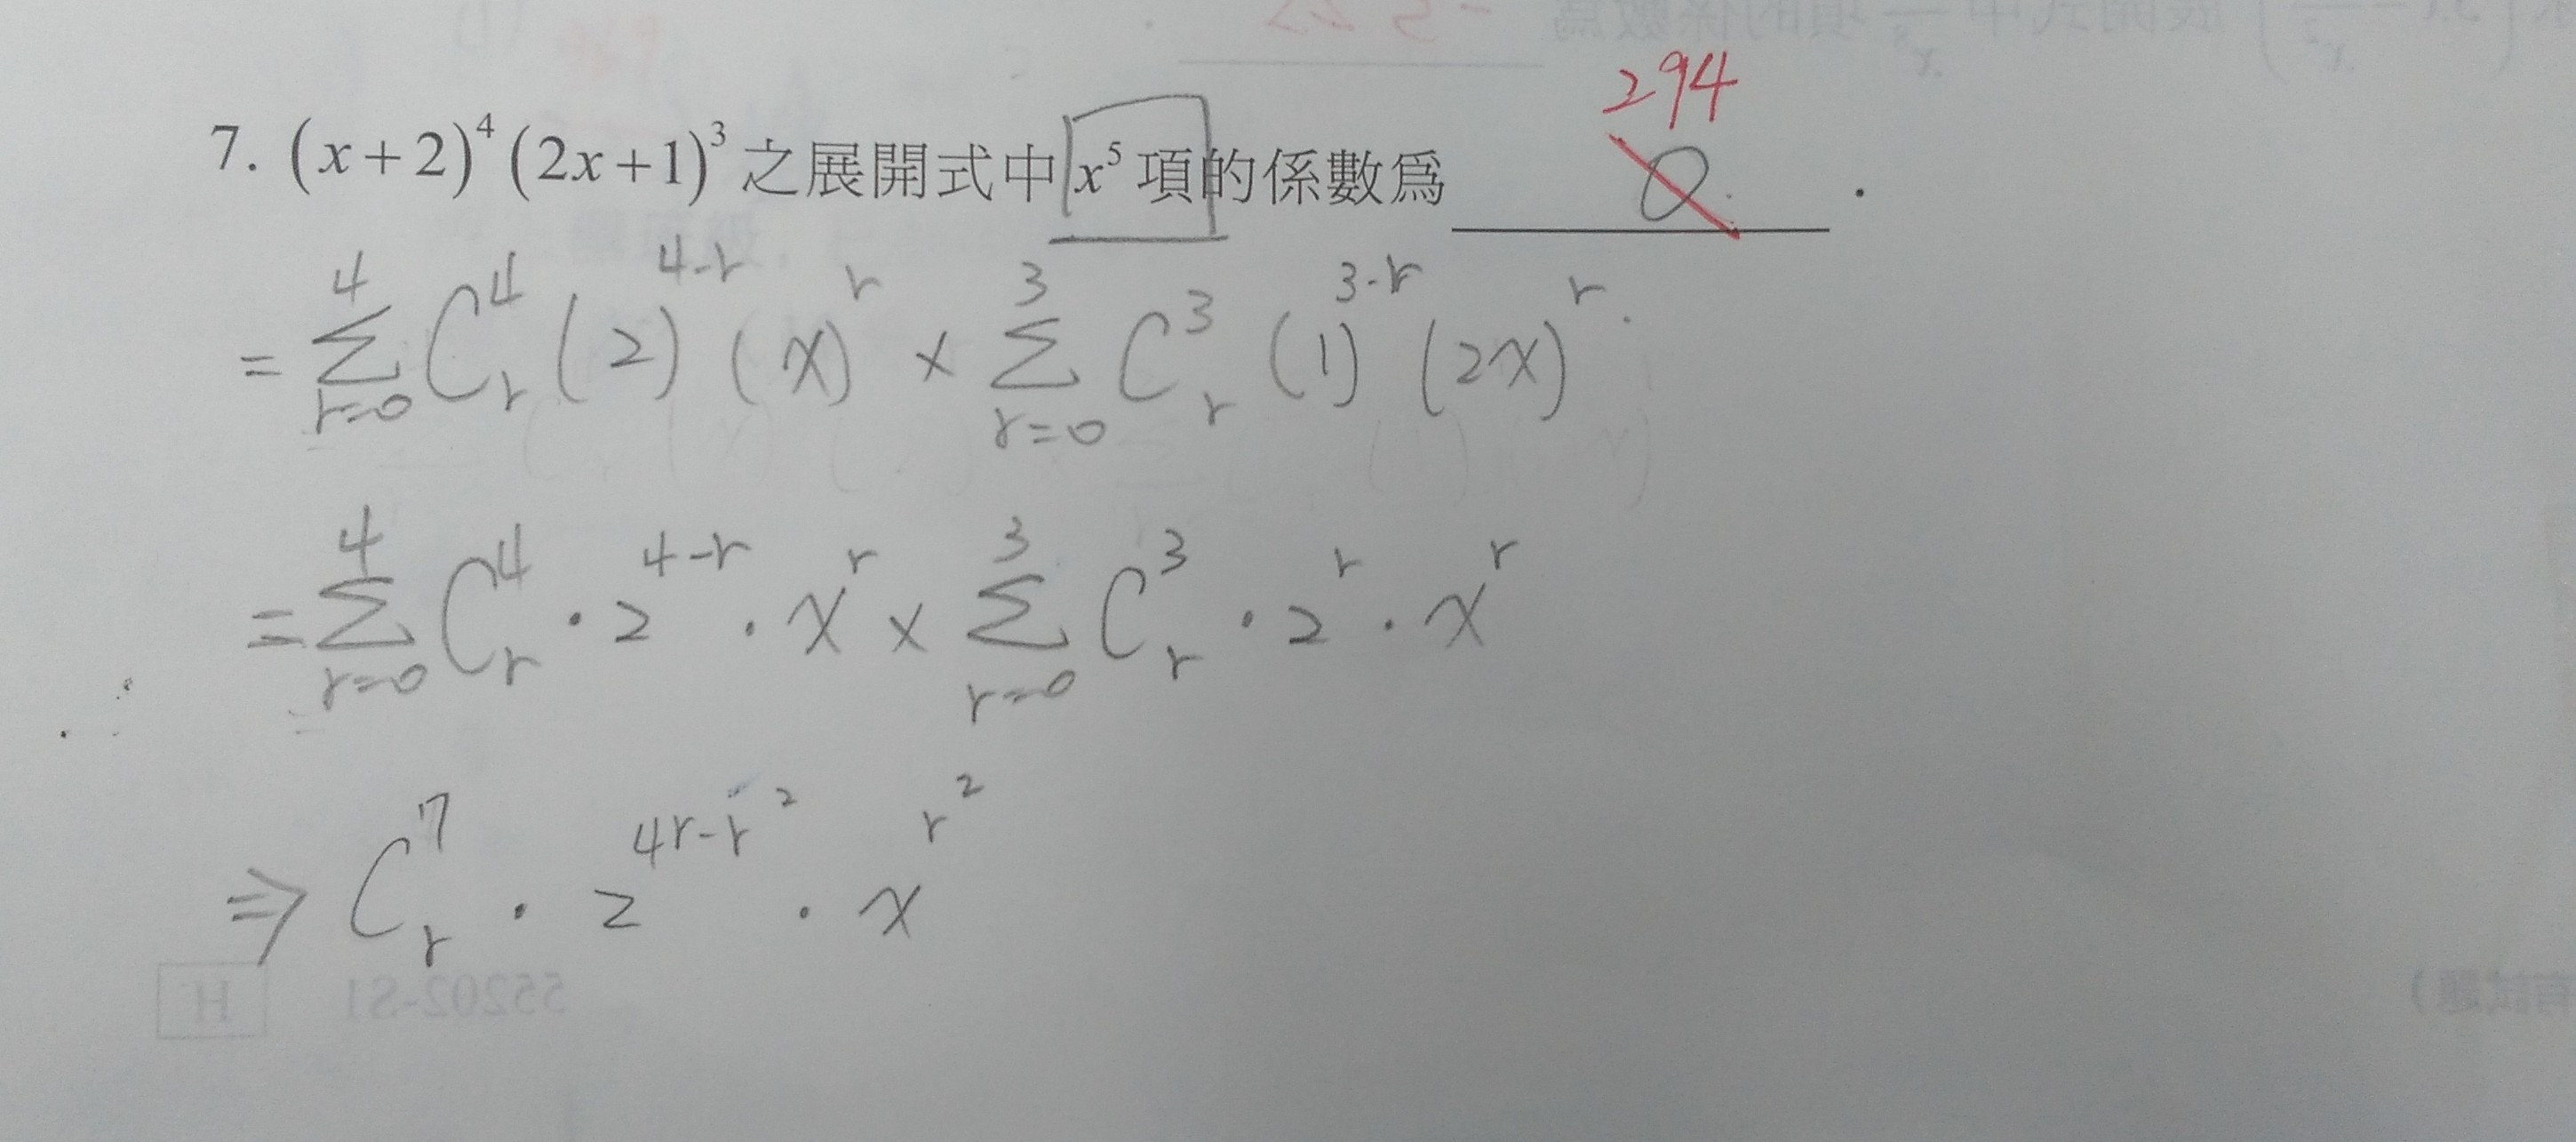 294
7. (x+2)⁴(2x+1)³之展開式中x⁵項的係數為 0 .
= Σ_{r=0}^{4} C_r^4 (2)^{4-r} (x)^r × Σ_{r=0}^{3} C_r^3 (1)^{3-r} (2x)^r.
= Σ_{r=0}^{4} C_r^4 · 2^{4-r} · x^r × Σ_{r=0}^{3} C_r^3 · 2^r · x^r
⇒ C_r^7 · 2^{4r-r²} · x^{r²}
H 55202-S1